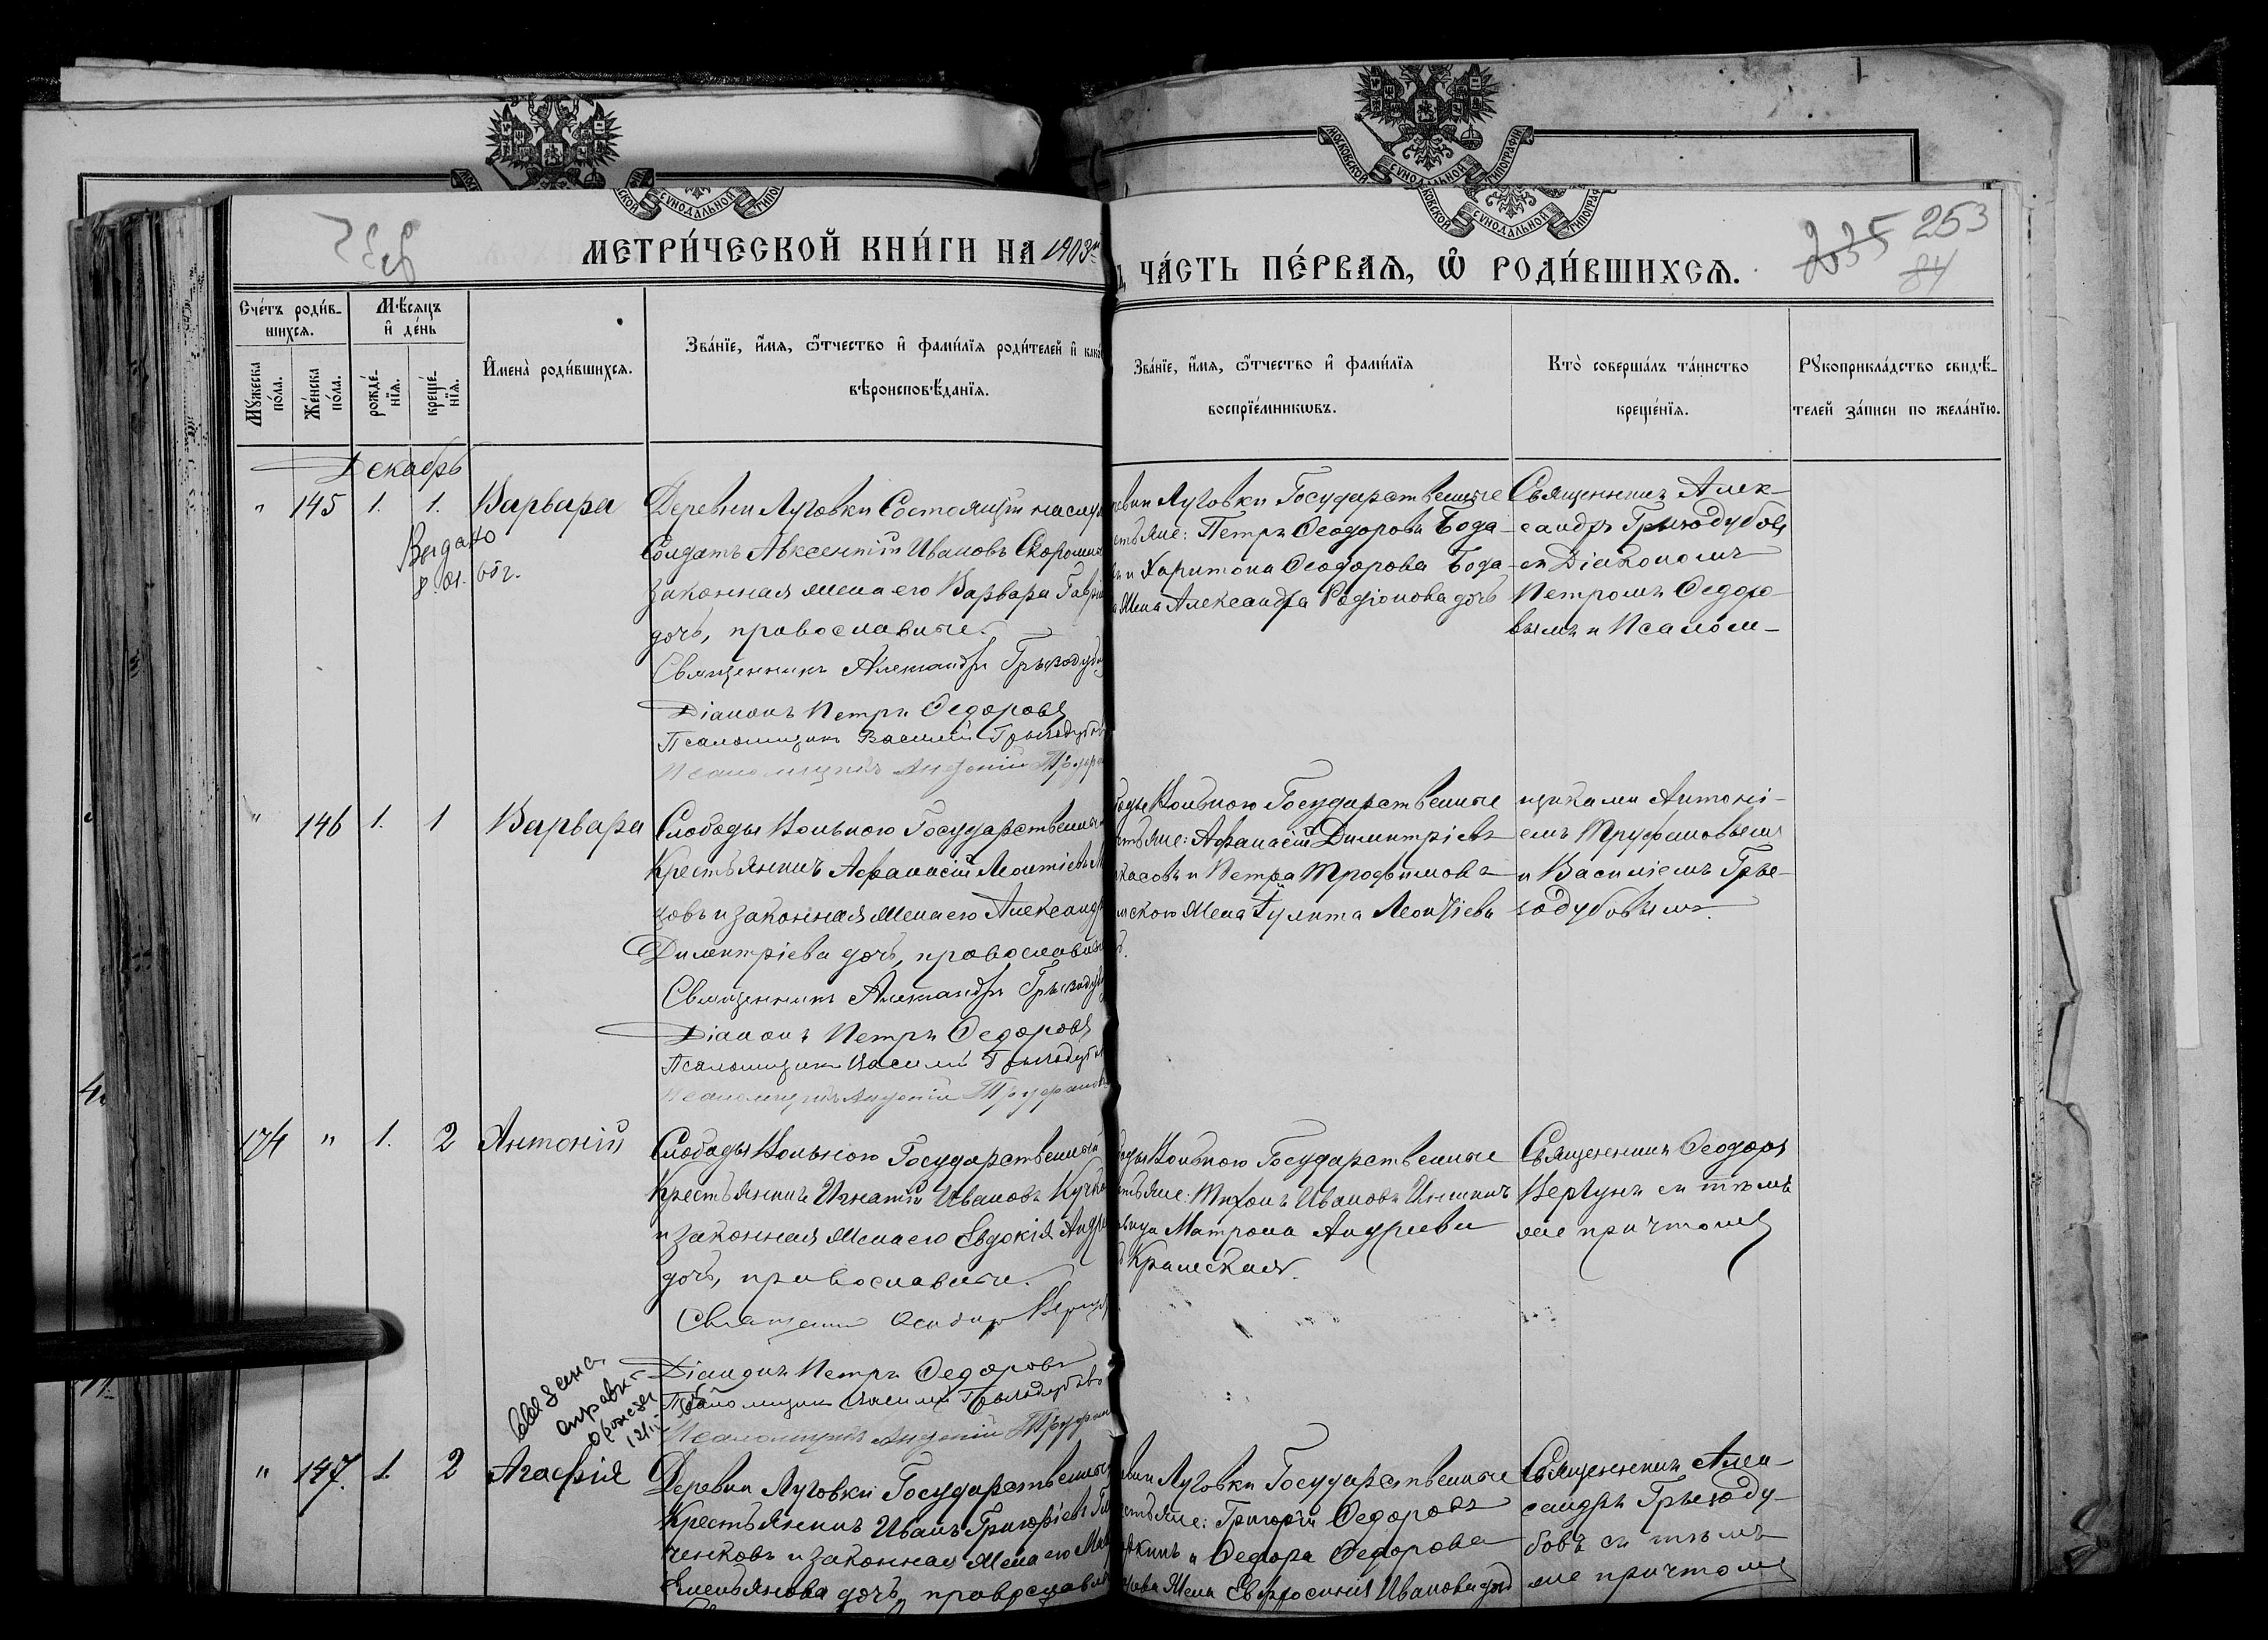 МОСКОВСКОЙ СУНОДАЛЬНОЙ ТИПОГРАФІИ
МЕТРИ́ЧЕСКОЙ КНИ́ГИ НА 1903
ЧА́СТЬ ПЕ́РВАЯ, Ѽ РОДИ́ВШИХСЯ.
235 253
84
Сче́тъ роди́в-
шихся.
Мꙋжеска по́ла.
Же́нска по́ла.
Мѣ́сяцъ
и҆ де́нь
рожде́-
нїя.
креще́-
нїя.
И҆мена̀ роди́вшихся.
Зва́нїе, и҆́мя, ѻ҆́тчество и҆ фами́лїя роди́телей и҆ како
вѣроисповѣ́данїя.
Зва́нїе, и҆́мя, ѻ҆́тчество и҆ фами́лїя
воспрїе́мникѡвъ.
Кто̀ соверша́лъ та́инство
креще́нїя.
Рꙋкоприкла́дство свидѣ́-
телей за́писи по жела́нїю.
Декабрь
" 145 1. 1. Варвара
Выдано
Деревни Луговки Состоящій на слу
Солдатъ Авксентій Ивановъ
законная жена его Варвара Гаврі
дочь, православные.
Священникъ Александръ Грызодуб
Діаконъ Петръ Ѳедоровъ
Псаломщикъ Василій Грызодубов
Псаломщикъ Антоній Труфан
вни Луговки Государственные
стьяне: Петръ Ѳеодоровъ Бода-
и Харитона Ѳеодорова Бода-
а жена Александра Родіонова дочь
Священникъ Алек-
сандръ Грызодубовъ
съ Діакономъ
Петромъ Ѳедоро-
вымъ и Псалом-
" 146 1. 1 Варвара
Слободы Вольного Государственный
Крестьянинъ Аѳанасій Леонтіевъ М
ковъ и законная жена его Александр
Димитріева дочь, православны
Священникъ Александръ Грызодуб
Діаконъ Петръ Ѳедоровъ
Псаломщикъ Василій Грызодубов
Псаломщикъ Антоній Труфанов
боды Вольного Государственные
стьяне: Аѳанасій Димитріевъ
касовъ и Петра Трофимова
нского жена Іулита Леонтіева
щиками Антоні-
емъ Труфановымъ
и Василіемъ Гры-
зодубовымъ.
174 " 1. 2 Антоній
Слободы Вольного Государственный
Крестьянинъ Игнатій Ивановъ
и законная жена его Евдокія Андре
дочь, православные.
Священникъ Ѳеодоръ Вергун
Діаконъ Петръ Ѳедоровъ
Псаломщикъ Василій Грызодубовъ
Псаломщикъ Антоній Труфан
боды Вольного Государственные
стьяне: Тихонъ Ивановъ
вица Матрона Андреева
Крамская.
Священникъ Ѳеодоръ
Вергунъ съ тѣмъ
же причтомъ
" 147. 1. 2 Агаѳія
Деревни Луговки Государственный
Крестьянинъ Иванъ Григорьевъ
ченковъ и законная жена его
Емельянова дочь, православны
вни Луговки Государственные
стьяне: Григорій Ѳедоровъ
и Ѳедора Ѳедорова
жена Евфросинія Иванова дочь
Священникъ Алек-
сандръ Грызоду-
бовъ съ тѣмъ
же причтомъ